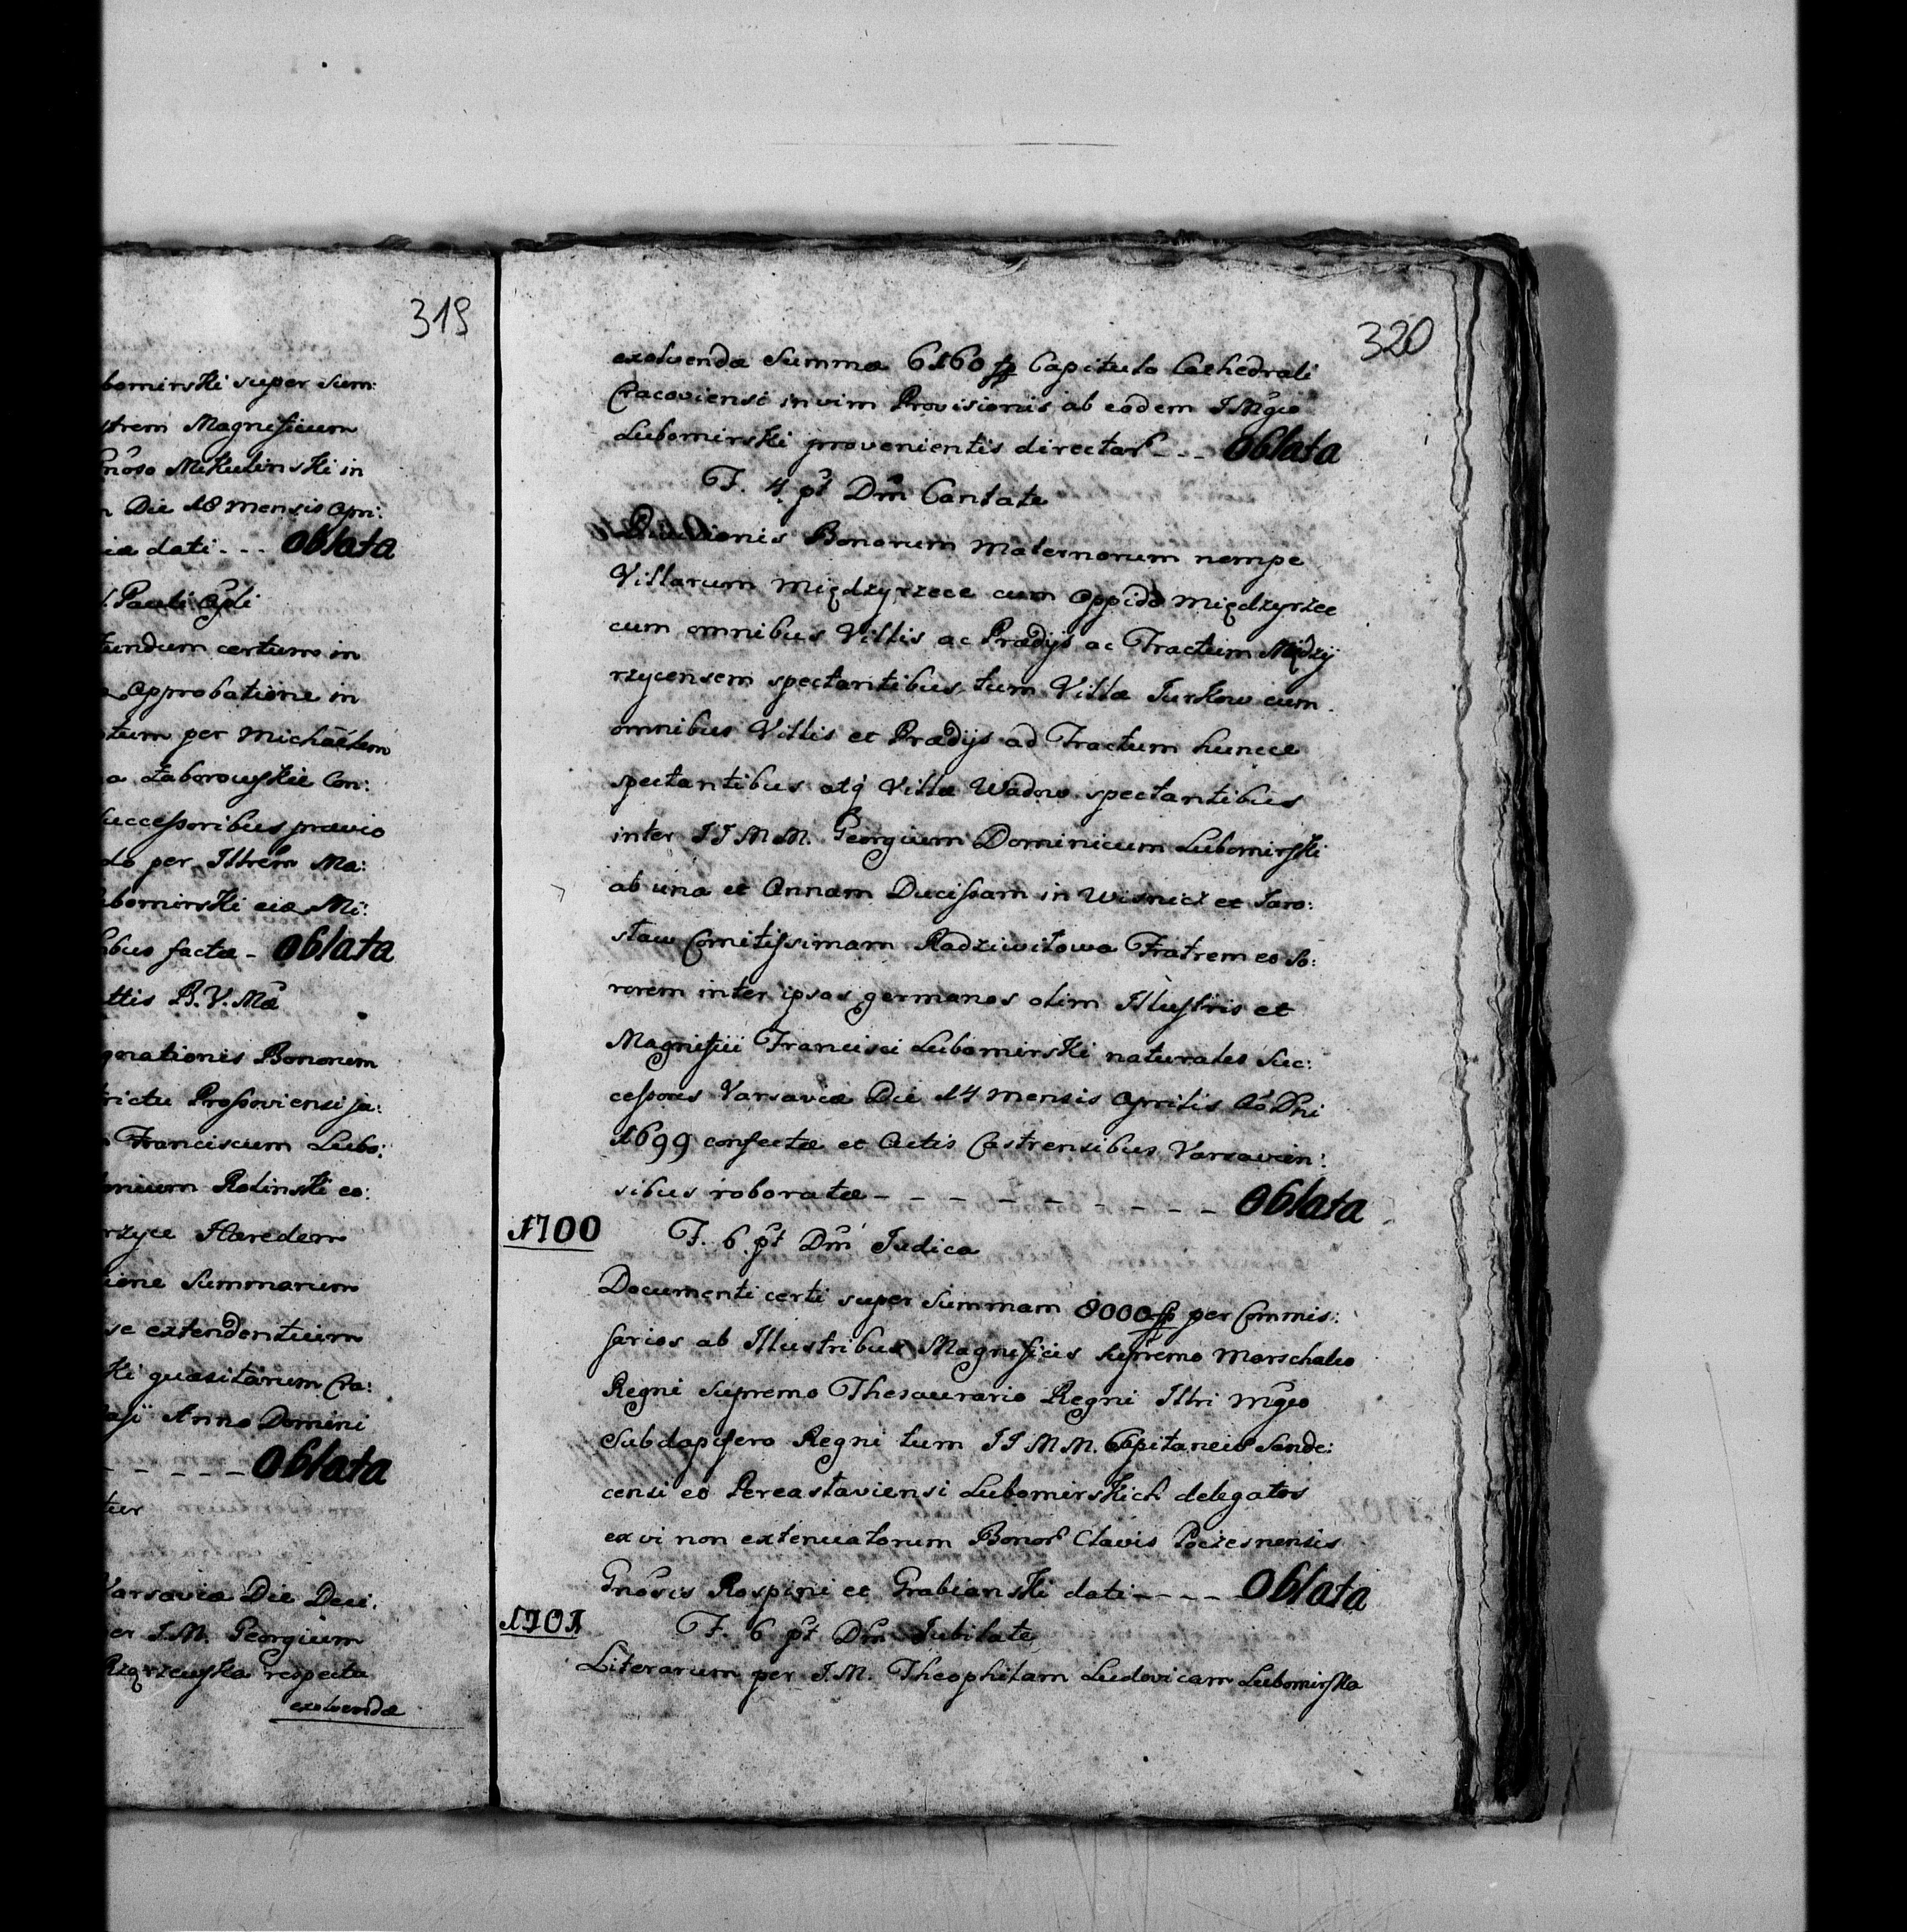 319
bomirski super Sum:
strem Magnificum
Gnoso Mikulinski in
n Die 18 Mensis Apri:
ia dati - - - Oblata
. Pauli Apli
fundum certum in
a Approbatione in
tum per Michaelem
a Zaborowskie Con:
Successoribus prævio
do per Illrem Ma:
ubomirski eiæ Mi:
ibus factæ - Oblata
ttis B. V. Mæ
gnationis Bonorum
trictu Proszoviensi ja:
Franciscum Lubo:
onium Rolinski eo:
rzyce Hæredem
ione Summarum
se extendentium
ki quæsitarum Cra:
asij Anno Domini
- - - - - Oblata
tur
Varsaviæ Die Deci:
er I. M. Georgium
respectu
exolvendæ
320
exolvendæ Summæ 6160 fp Capitulo Cathedrali
Cracoviensi in vim Provisionis ab eodem I Mgco
Lubomirski provenientis directar - - - Oblata
F. 4 pt Dm Cantate
Divisionis Bonorum Maternorum nempe
Villarum Międzyrzece cum Oppido Międzyrzec
cum omnibus Villis ac Prædijs ac Tractum Między
rzycensem spectantibus, tum Villæ Turkow cum
omnibus Villis et Prædijs ad Tractum huncce
spectantibus atq Villæ Wadow spectantibus
inter I I M M. Georgium Dominicum Lubomirski
ab una et Annam Ducissam in Wisnicz et Jaro:
sław Comitissimam Radziwiłowa Fratrem eo So:
rorem inter ipsos germanos olim Illustris et
Magnifici Francisci Lubomirski naturales Suc:
cessores Varsaviæ Die 14 Mensis Aprilis Ao Dni
1699 confectæ et Actis Castrensibus Varsavien:
sibus roboratæ - - - - - - - - Oblata
1700
F. 6 pt Dm Judica
Documenti certi super Summam 8000 fp per Commis:
sarios ab Illustribus Magnificis Supremo Marschalco
Regni Supremo Thesaurario Regni Illri Mgco
Subdapifero Regni tum I I M M. Capitaneis Sande:
censi eo Pereasłaviensi Lubomirskich delegatos
ex vi non extenuatorum Bonor Clavis
Gnosis Rospini et Grabianski dati - - - - Oblata
1701
F. 6 pt Dm Jubilate
Literarum per I. M. Theophilam Ludovicam Lubomirska